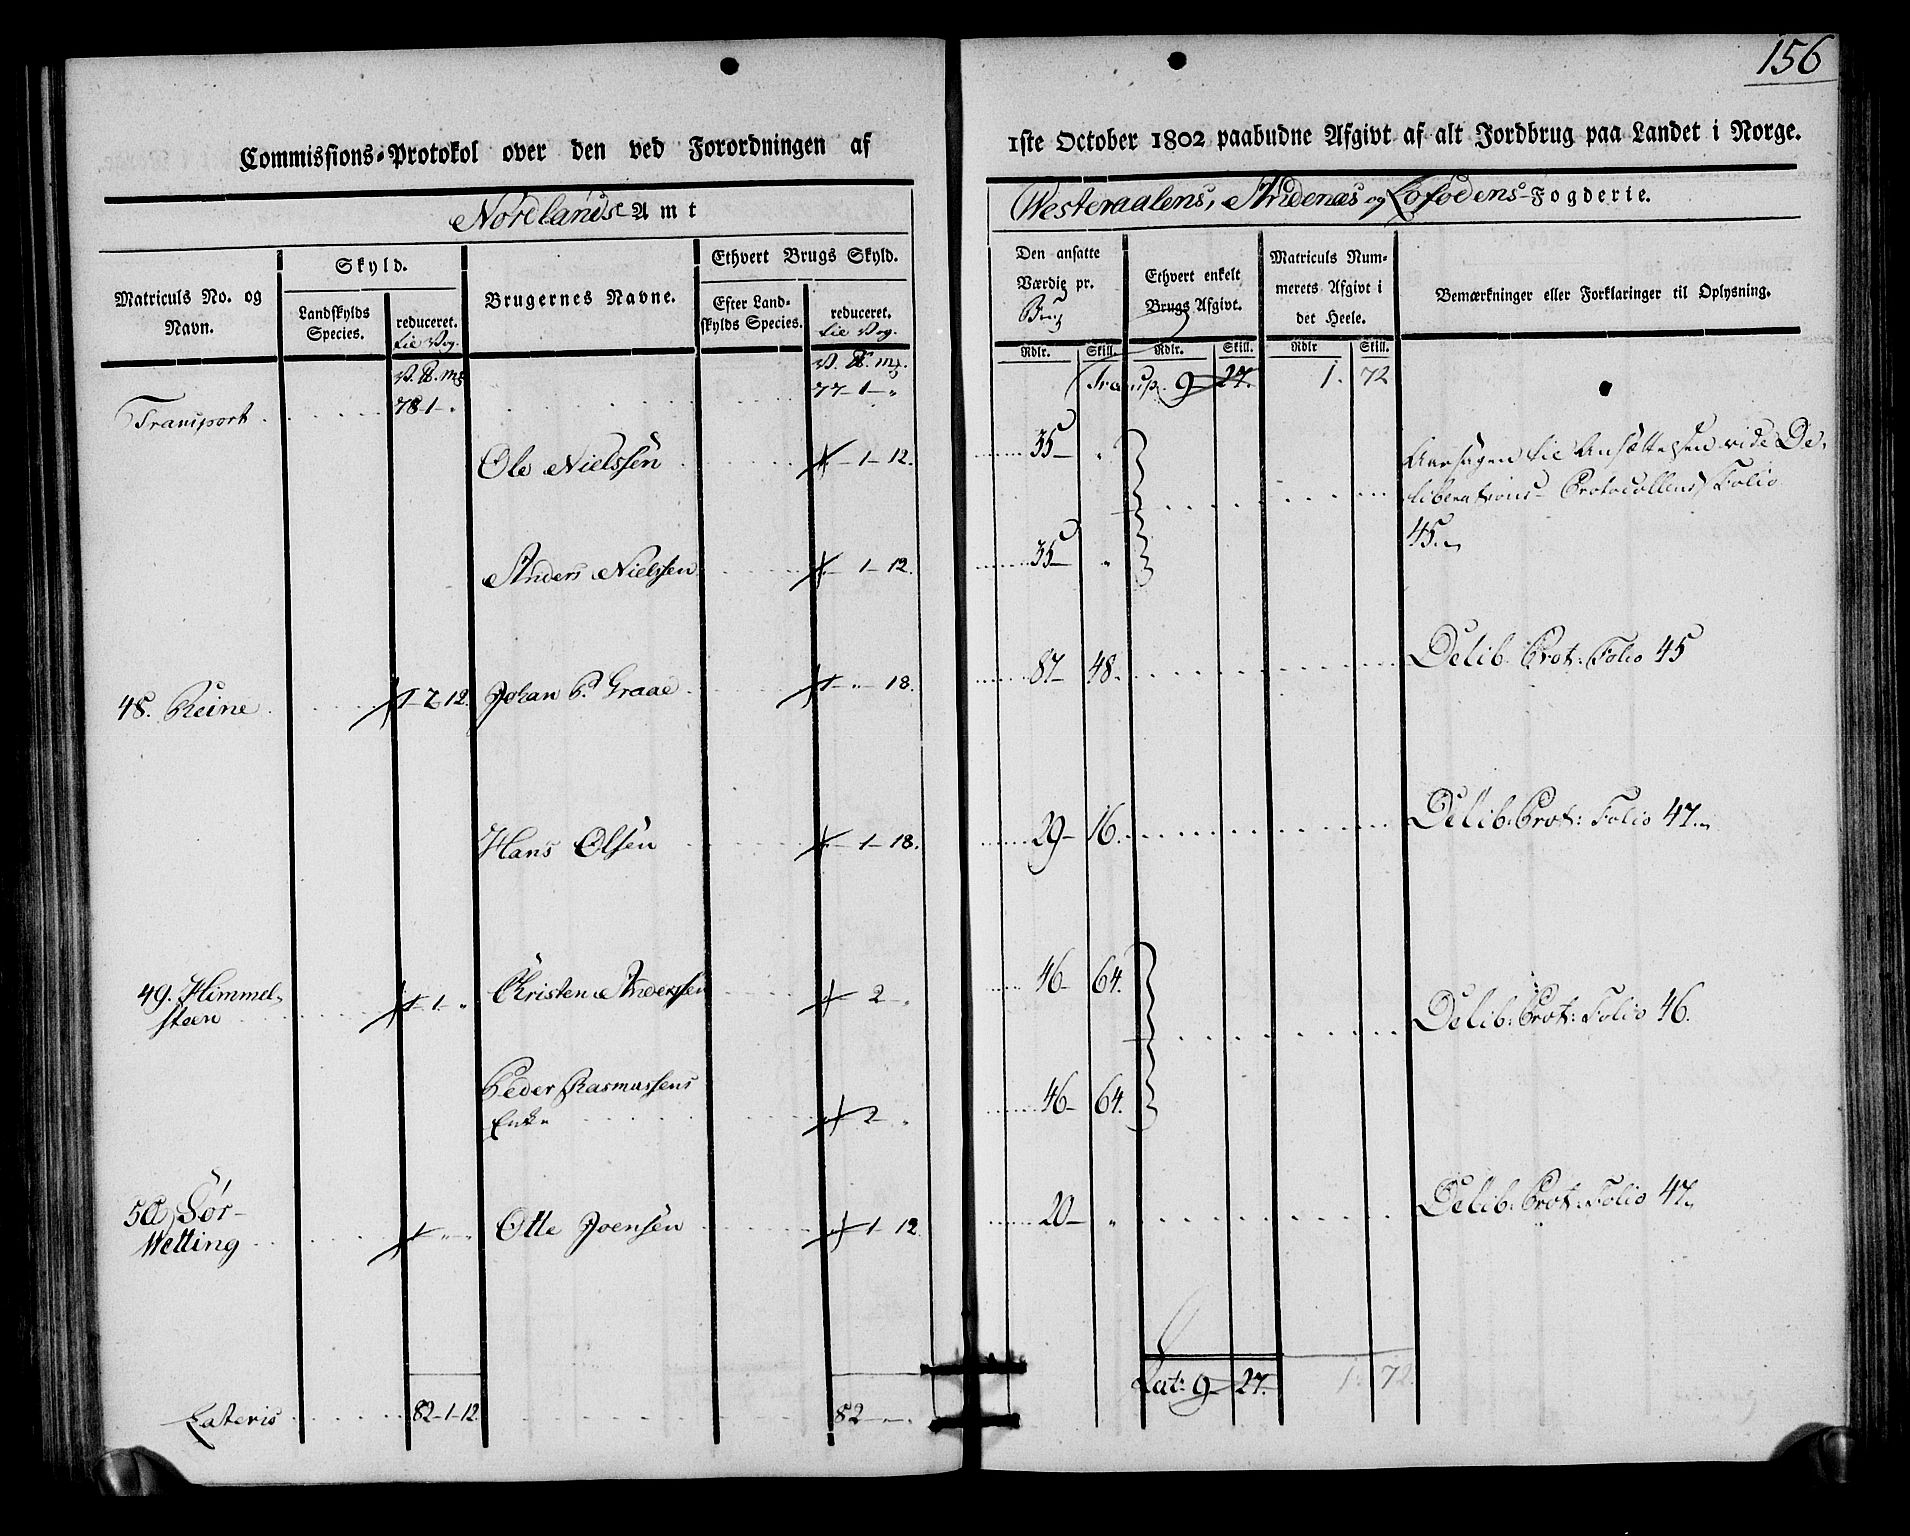 156
Commissions-Protokol over den ved Forordningen af 1ste October 1802 paabudne Afgivt af alt Jordbrug paa Landet i Norge.
Nordlands Amt
Westeraalens, Andenæs og Lofodens-Fogderie.
Matriculs No. og Navn.
Skyld.
Landskylds Species.
reduceret. til Vog.
Brugernes Navne.
Ethvert Brugs Skyld.
Efter Landskylds Species.
reduceret. til Vog.
Den ansatte Værdie pr. Brug
Ethvert enkelt Brugs Afgivt.
Matriculs Nummerets Afgivt i det Heele.
Bemærkninger eller Forklaringer til Oplysning.
Rdlr. Skill. Rdlr. Skill. Rdlr Skill.
V. ℔. mk. V. ℔. mk.
Transport 78-1-" 77-1-" Transp. 9 27. 1. 72
Ole Nielssen 1-12. 35- " Aarsagen til Ansættelsen vide De-
liberations-Protocollens Folio
45.
Anders Nielssen 1-12. 35- "
48. Reine 1-2-12. Johan P. Graae 1-"-18. 87- 48. Delib. Prot: Folio 45
Hans Olsen 1-18. 29- 16. Delib: Prot: Folio 47.
49. Himmel-
steen 1-1-" Christen Anderssen 2-" 46- 64. Delib: Prot: Folio 46.
Peder Rasmussens
Enke 2-" 46- 64.
50 Sør-
Wetting 1-"-" Otte Joensen 1-12 20- " Delib: Prot: Folio 47.
Lateris 82-1-12. 82-"-" Lat: 9 27. 1. 72.